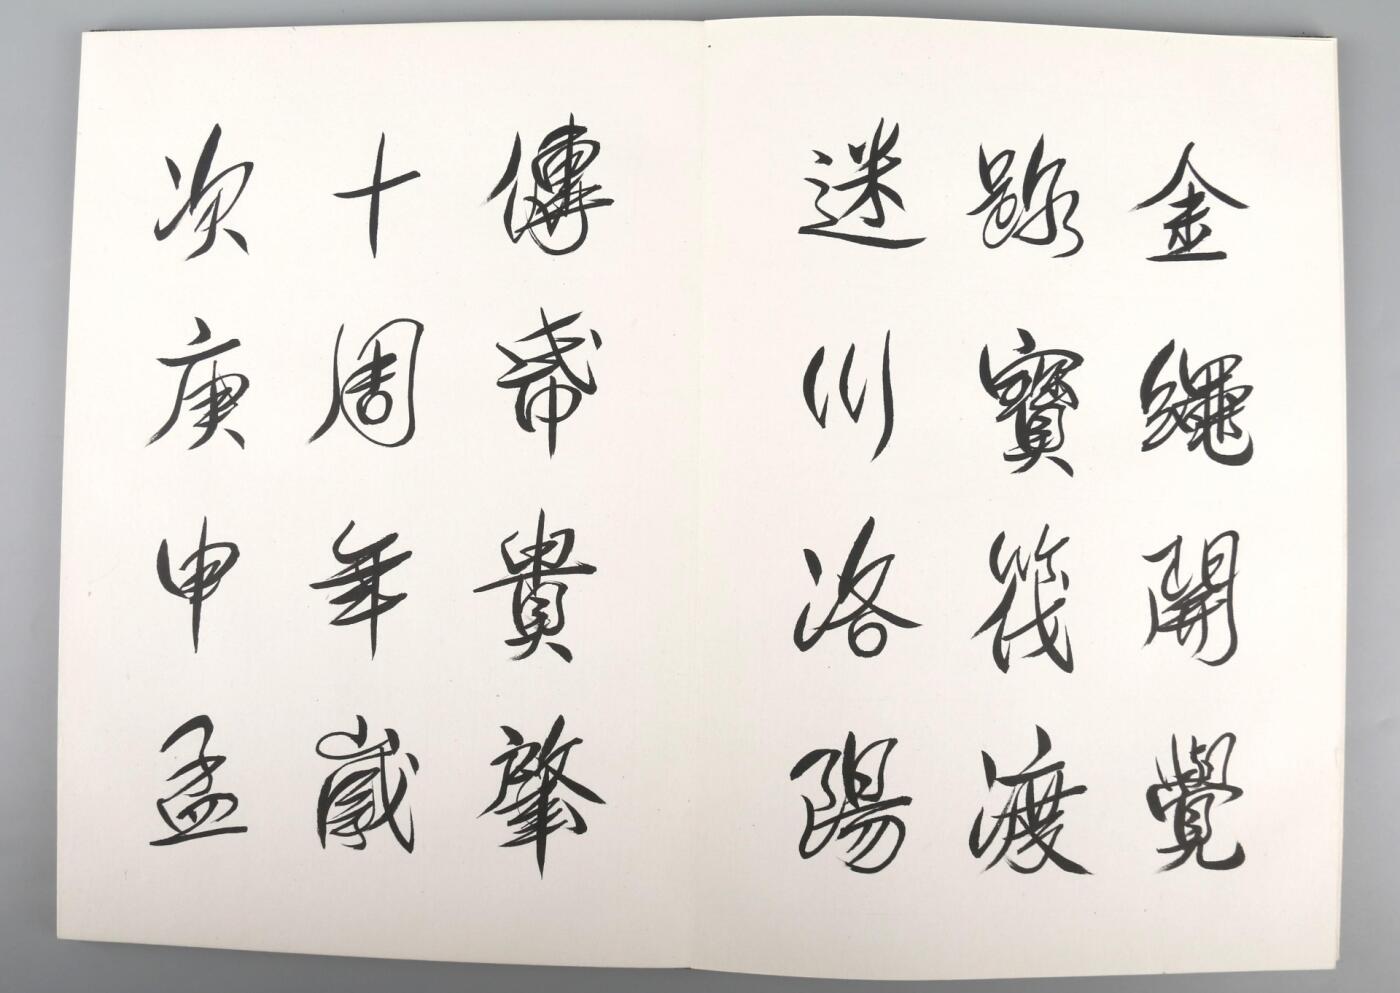 金繩開覺
路寶筏渡
迷川洛陽
傳幣貴肇
十周年歲
次庚申孟